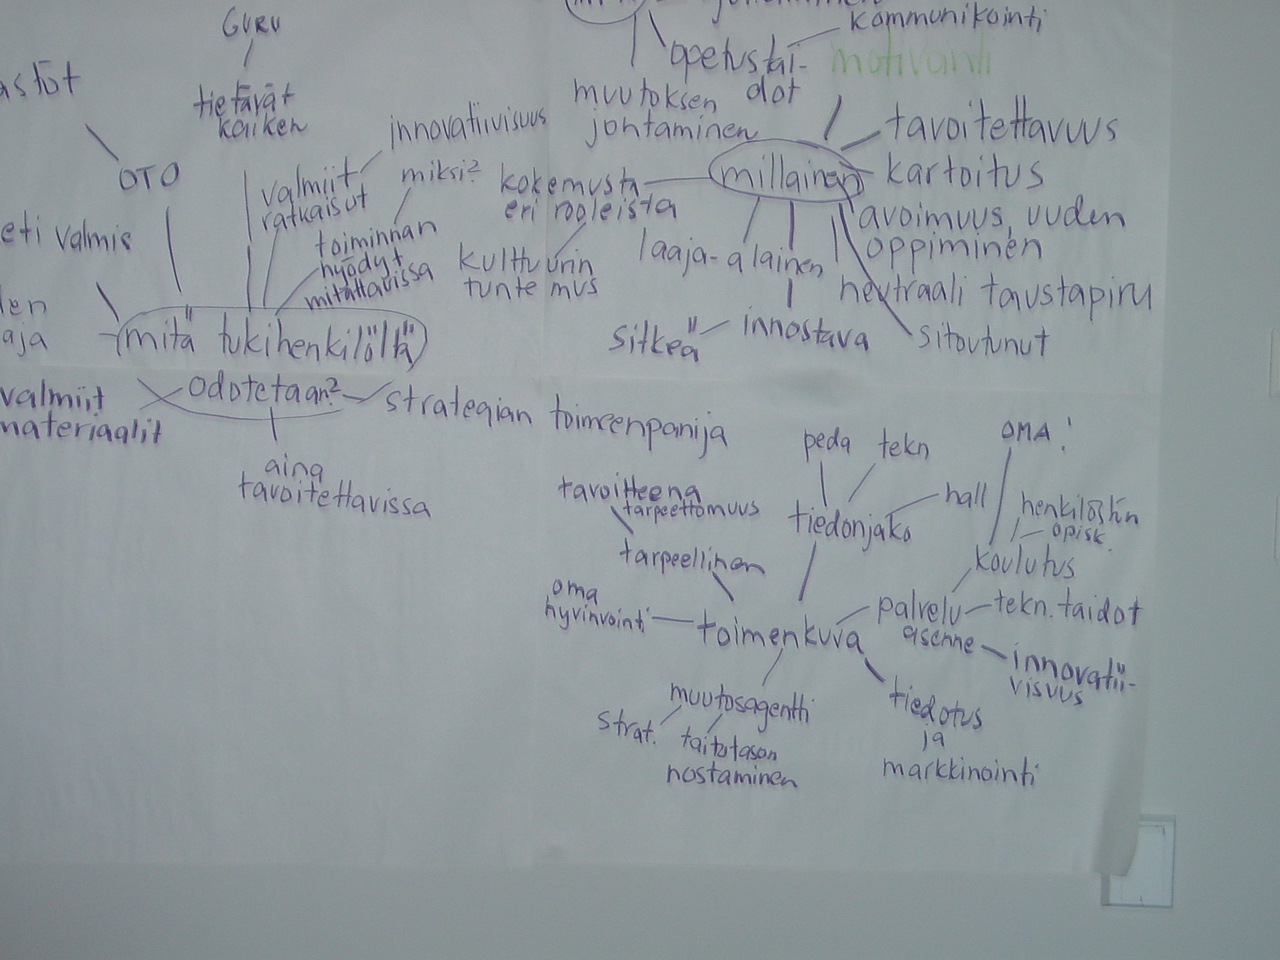 GURU
tietävät
kaiken
OTO
valmiit
ratkaisut
innovatiivisuus
miksi?
toiminnan
hyödyt
mitattavissa
eti valmis
len
aja
mitä tukihenkilöltä
odotetaan?
valmiit
materiaalit
aina
tavoitettavissa
strategian toimeenpanija
kommunikointi
opetustai-
dot
motivointi
muutoksen
johtaminen
millainen
tavoitettavuus
kartoitus
avoimuus, uuden
oppiminen
neutraali taustapiru
sitoutunut
kokemusta
eri rooleista
kulttuurin
tuntemus
laaja-alainen
innostava
sitkeä
peda
tekn
hall
tiedonjako
OMA!
henkilöstön
opisk.
koulutus
tavoitteena
tarpeettomuus
tarpeellinen
oma
hyvinvointi
toimenkuva
palvelu
asenne
tekn. taidot
innovatii-
visuus
muutosagentti
strat.
taitotason
nostaminen
tiedotus
ja
markkinointi